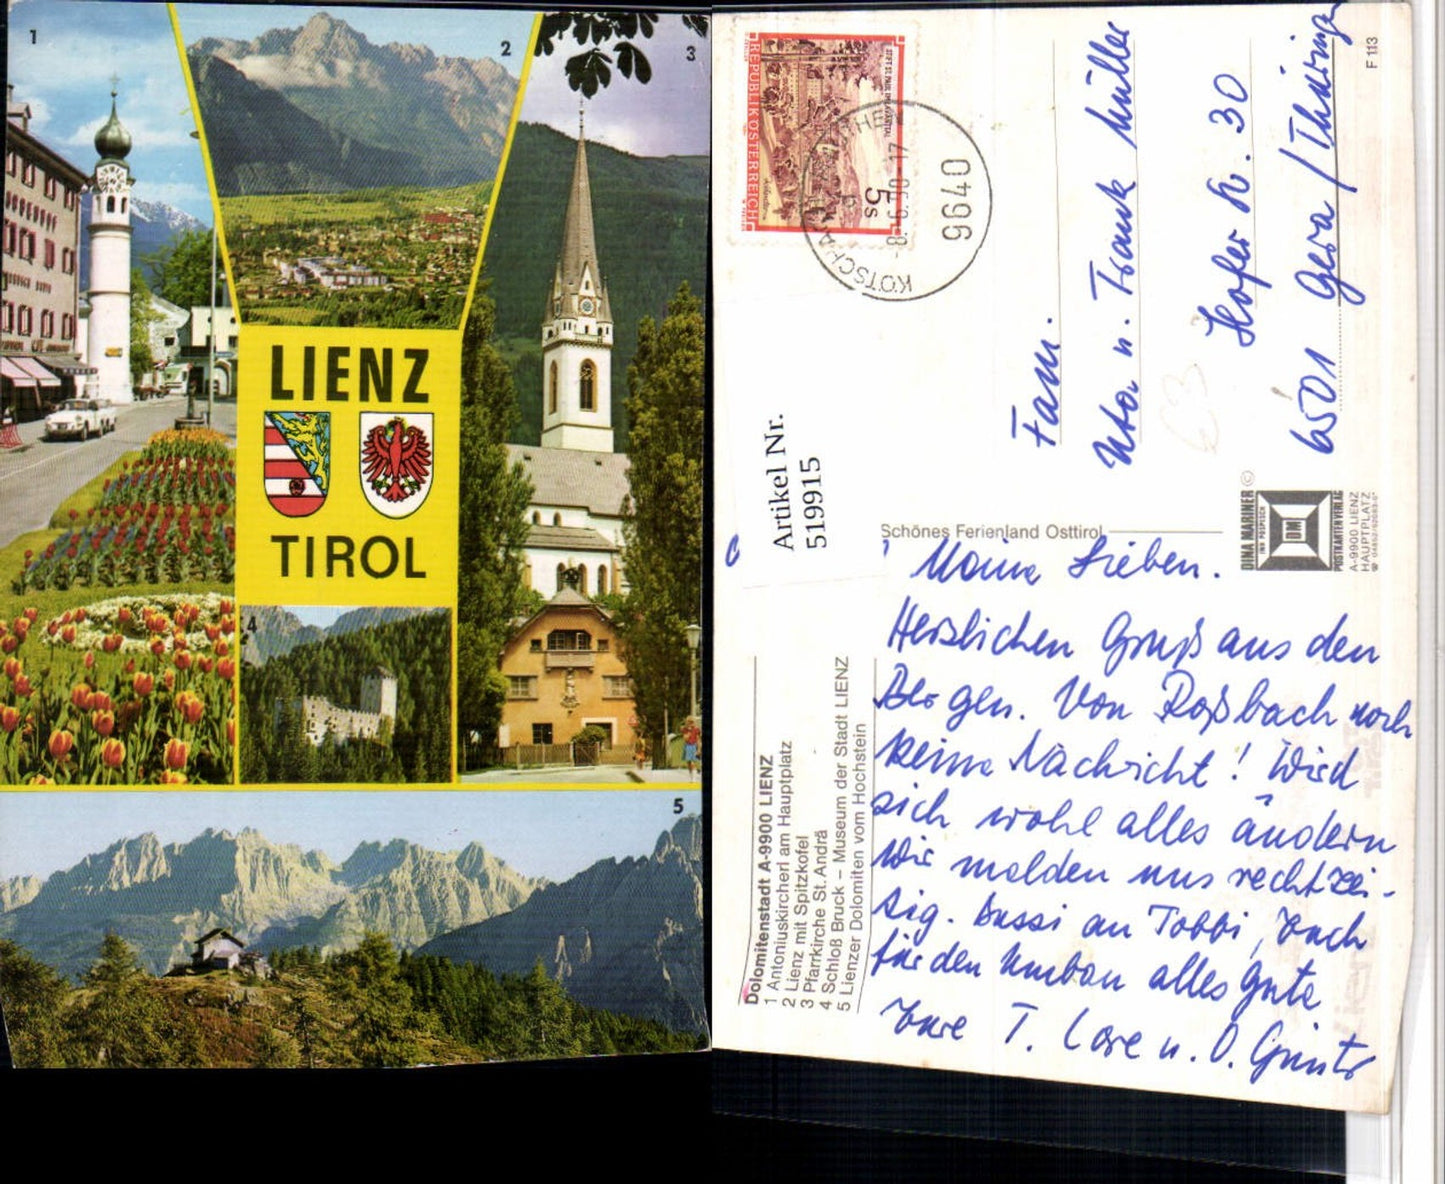 1
2
3
LIENZ
TIROL
4
5
REPUBLIK ÖSTERREICH
5s
9640
-8.6.90-17
Artikel Nr.
519915
Fam.
Uta u. Frank Müller
Hofer Str. 30
6501 Gera / Thüringen
F 113
Schönes Ferienland Osttirol
DINA MARINER ©
DM
POSTKARTENVERLAG
A-9900 LIENZ
HAUPTPLATZ
Dolomitenstadt A-9900 LIENZ
1 Antoniuskircherl am Hauptplatz
2 Lienz mit Spitzkofel
3 Pfarrkirche St. Andrä
4 Schloß Bruck – Museum der Stadt LIENZ
5 Lienzer Dolomiten vom Hochstein
Meine Lieben.
Herzlichen Gruß aus den
Bergen. Von Roßbach noch
keine Nachricht! Wird
sich wohl alles ändern
Wir melden uns rechtzei-
tig. Bussi an Tobbi, Euch
für den Umbau alles Gute
Eure T. Lore u. O. Günter